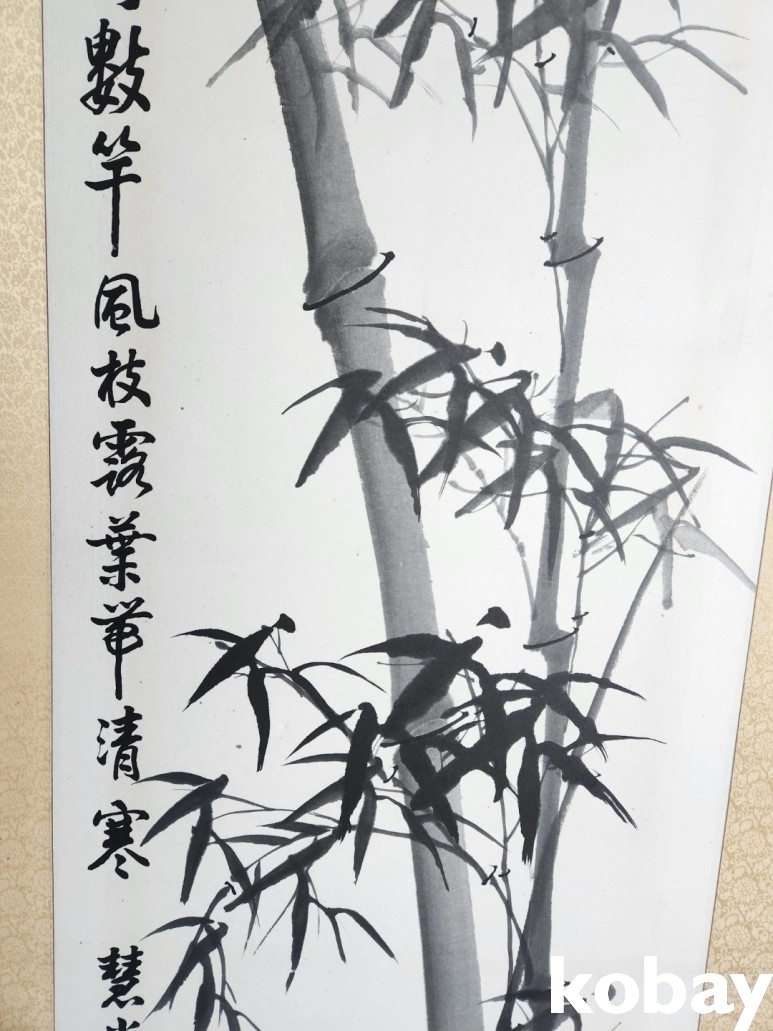 數竿風枝露葉带清寒
慧
kobay